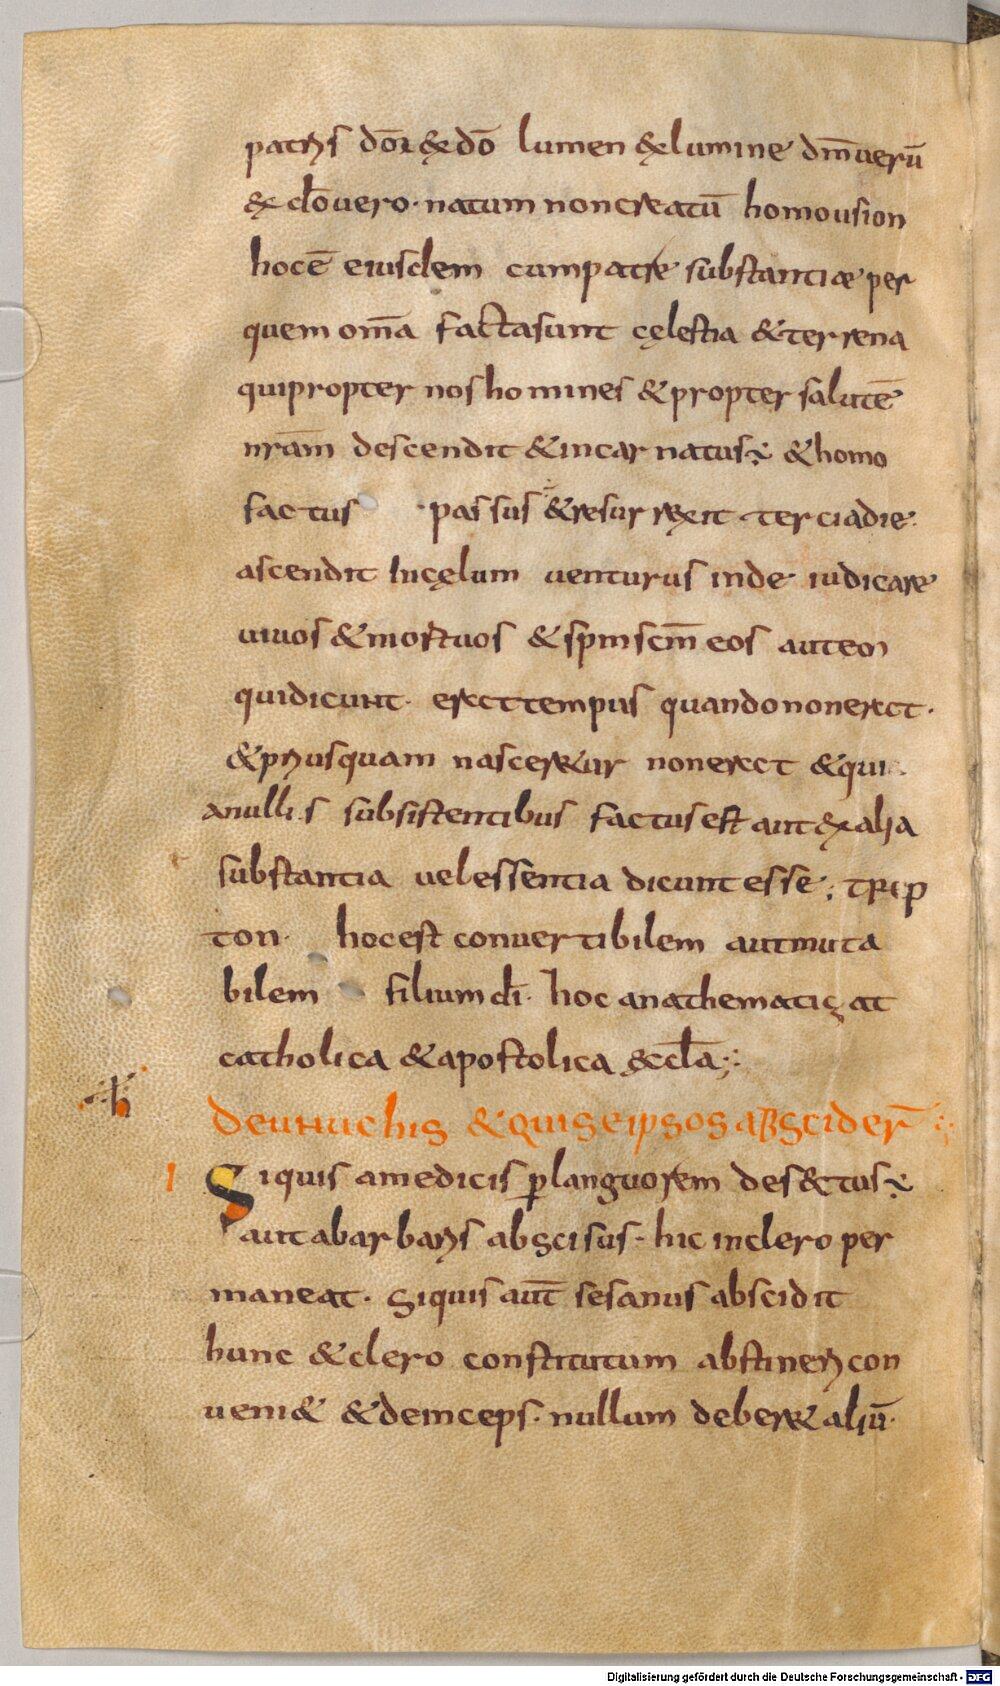 patris dōr &x dō lumen &x lumine dm̄ uerū
&x dō uero · natum noncreatū homousion
hocē eiusdem cumpatre substantiæ per
quem om̄a factasunt cęlestia & terrena
quipropter nos homines & propter salutē
nrām descendit & incarnatus÷ & homo
factus · passus & resurrexit terciadie
ascendit Incęlum uenturus inde iudicare
uiuos & mortuos & spm scm̄ eos autem
quidicunt · erat tempus quandononerat ·
& priusquam nascer&ur nonerat & qui
anullis subsistentibus factusest aut exalia
substantia uelessentia dicunt esse ; TREP
TON · hocest conuertibilem autmuta
bilem filium dī · hoc anathematizat
catholica & apostolica &ccla ;
DeUNuchis & QUISeipsos ABSciderт̄
I Siquis amedicis planguorem des&ctus÷
aut abarbaris abscisus · hic inclero per
maneat · Siquis aut̄ sesanus abscidit
hunc & clero constitutum abstineri con
ueni& & deinceps · nullum deber& aliū ·
Digitalisierung gefördert durch die Deutsche Forschungsgemeinschaft - DFG